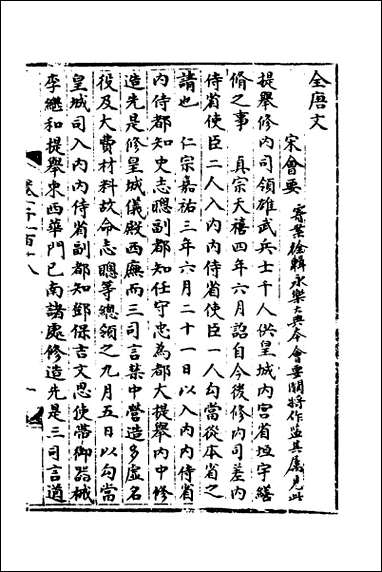 全唐文
宋會要
寄案徐輯永樂大典本會要關將作監其屬見此
提舉修內司領雄武兵士千人供皇城內宮省垣宇繕
脩之事　真宗天禧四年六月詔自今後修內司差內
侍省使臣二人入內內侍省使臣一人勾當從本省之
請也　仁宗嘉祐三年六月二十一日以入內內侍省
內侍都知史志聰副都知任守忠為都大提舉內中修
造先是修皇城儀殿西廡而三司言禁中營造多虛名
役及大費材料故命志聰等總領之九月五日以勾當
皇城司入內內侍省副都知鄧保吉文思使帶御器械
李繼和提舉東西華門已南諸處修造先是三司言遒
卷一千一百十八
一